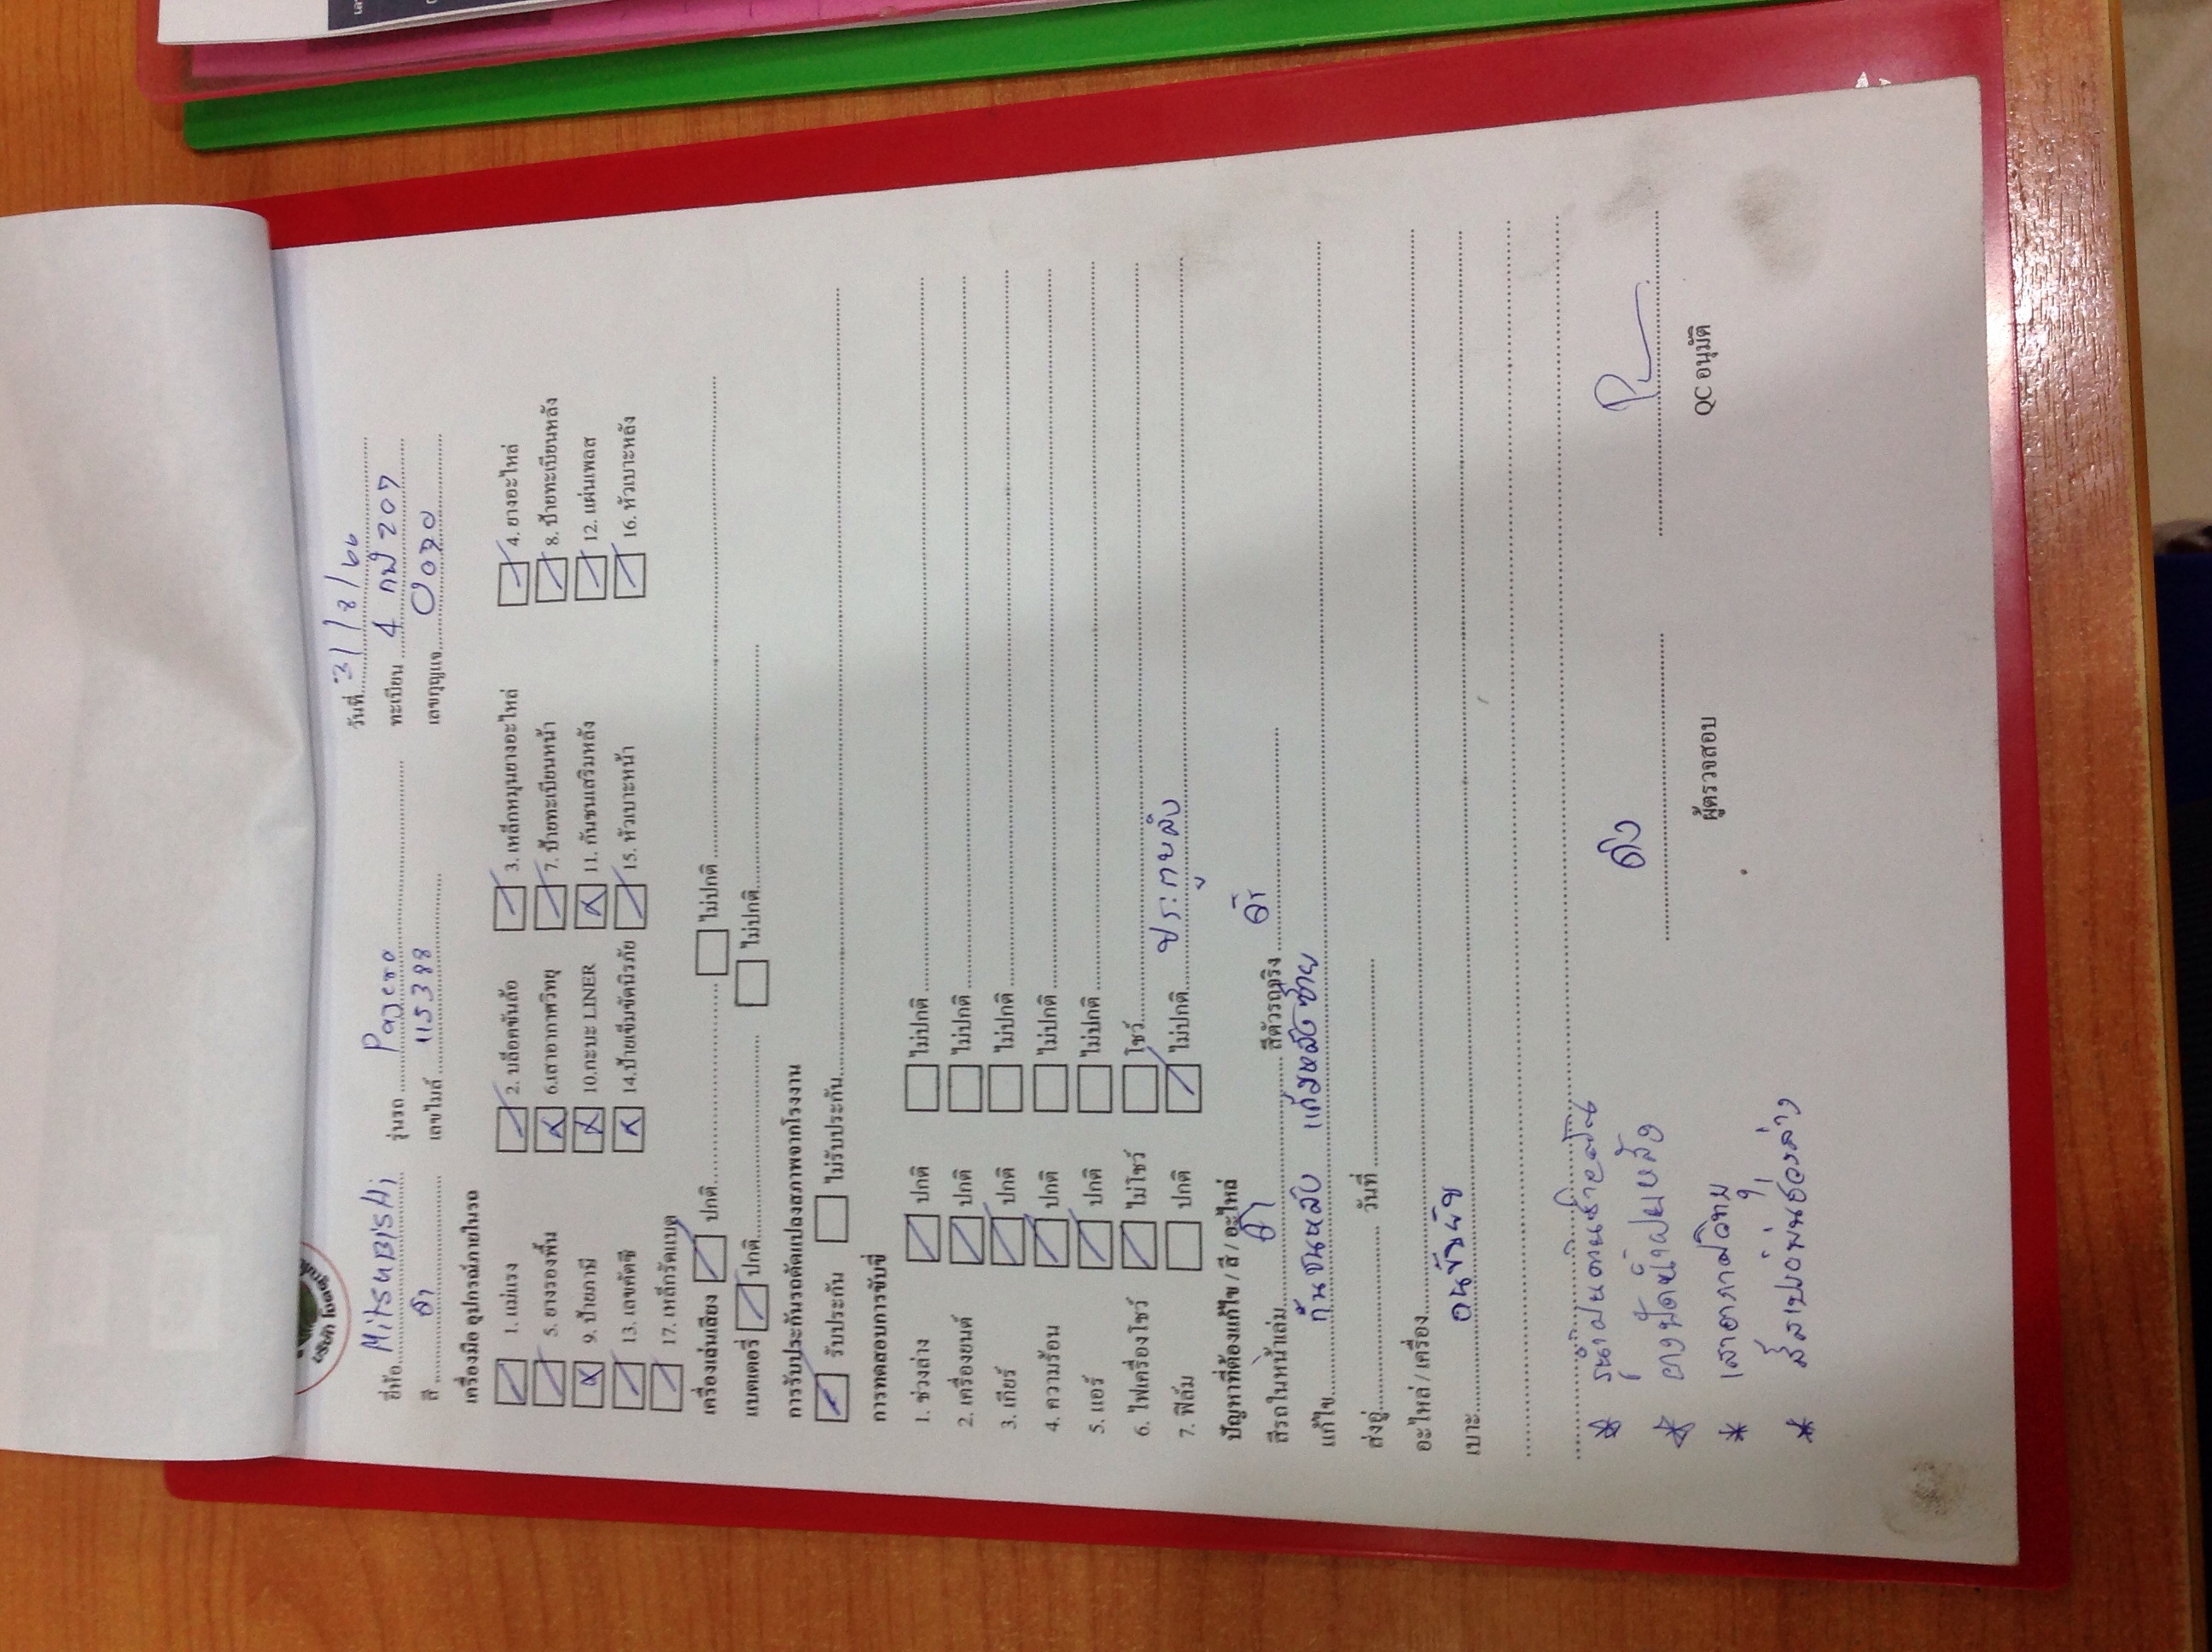 ยี่ห้อ Mitsubishi รุ่นรถ Pajero วันที่ 31/8/66
สี ดำ เลขไมล์ 115388 ทะเบียน 4 กฬ 207
เลขกุญแจ
เครื่องมือ อุปกรณ์ภายในรถ
1. แม่แรง 2. บล๊อคขันล้อ 3. เหล็กหมุนยางอะไหล่ 4. ยางอะไหล่
5. ยางรองพื้น 6.เสาอากาศวิทยุ 7. ป้ายทะเบียนหน้า 8. ป้ายทะเบียนหลัง
9. ป้ายภาษี 10.กะบะ LINER 11. กันชนเสริมหลัง 12. แผ่นเพลส
13. เลขคัตซี 14.ป้ายเข็มขัดนิรภัย 15. หัวเบาะหน้า 16. หัวเบาะหลัง
17. เหล็กรัดแบต
เครื่องเล่นเสียง ปกติ ไม่ปกติ
แบตเตอรี่ ปกติ ไม่ปกติ
การรับประกันรถดัดแปลงสภาพจากโรงงาน
รับประกัน ไม่รับประกัน
การทดสอบการขับขี่
1. ช่วงล่าง ปกติ ไม่ปกติ
2. เครื่องยนต์ ปกติ ไม่ปกติ
3. เกียร์ ปกติ ไม่ปกติ
4. ความร้อน ปกติ ไม่ปกติ
5. แอร์ ปกติ ไม่ปกติ
6. ไฟเครื่องโชว์ ไม่โชว์ โชว์
7. ฟิล์ม ปกติ ไม่ปกติ ประตูบหลัง
ปัญหาที่ต้องแก้ไข / สี / อะไหล่
สีรถในหน้าเล่ม ดำ สีตัวรถจริง ดำ
แก้ไข กันชนหลัง แก้มหลังซ้าย
ส่งอู่ วันที่
อะไหล่ / เครื่อง
เบาะ
*
* ยางปัดน้ำฝนหลัง
* เสาอากาศวิทยุ
*
ผู้ตรวจสอบ QC อนุมัติ